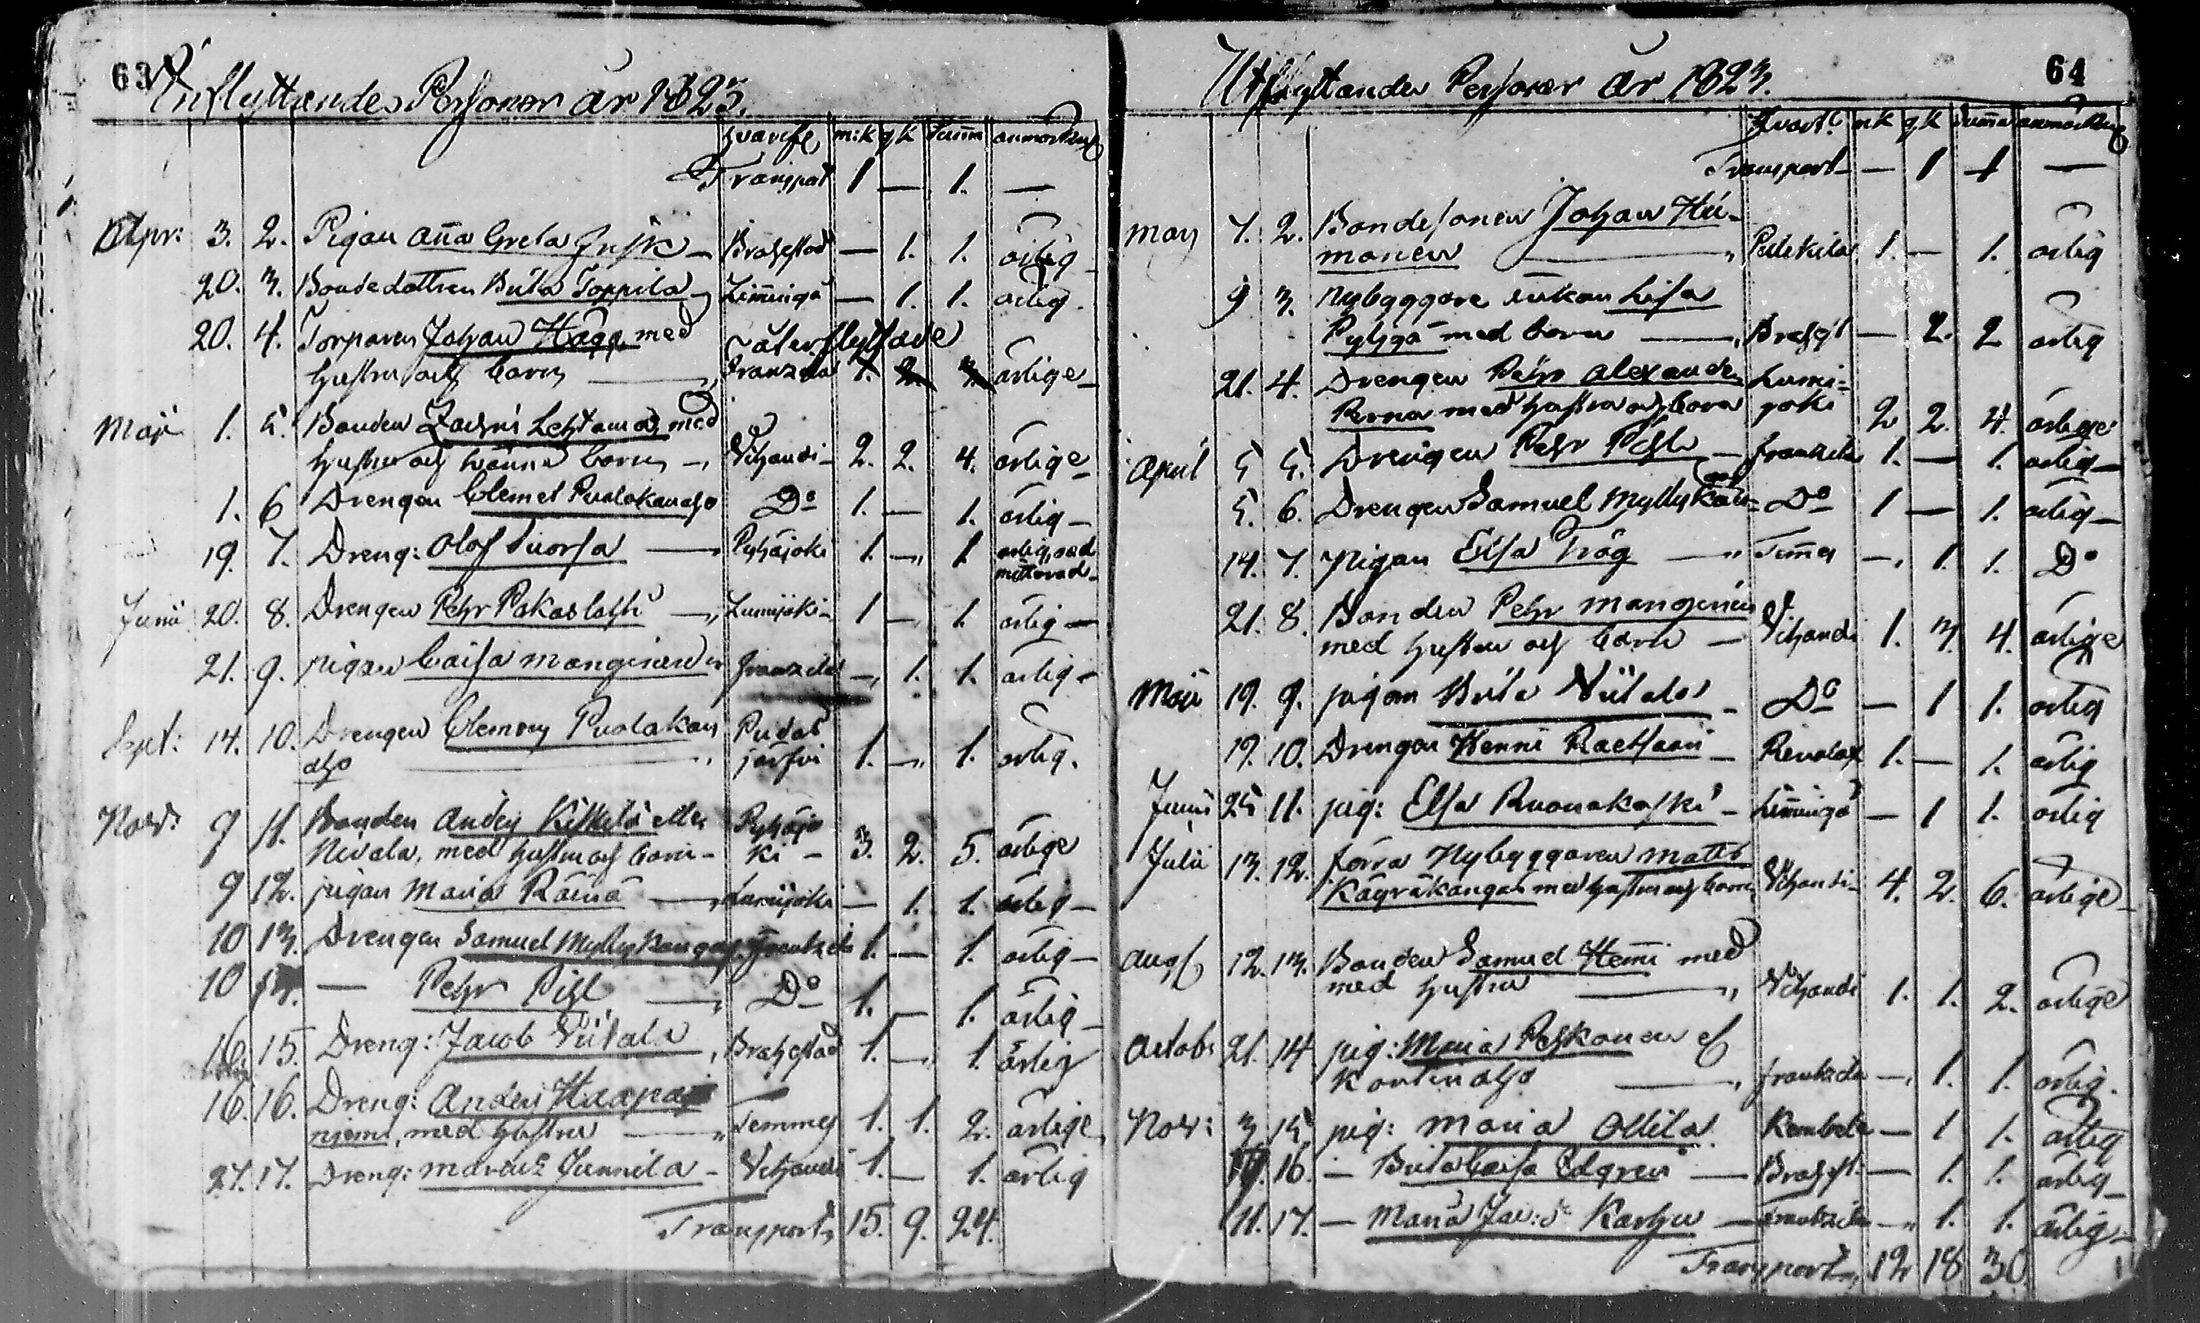 63
Inflyttande Personer år 1823.
hvarifr m:k q k Summ anmärkng
Transport 1 — 1. —
Apr: 3. 2. Pigan Aña Greta — Brahestad — 1. 1. ärlig
20. 3. Bondedottren Brita Toppila Limingo — 1. 1. ärlig.
20. 4. Torparen Johan Hägg med återflyttade
hustru och barn — Franzila 1. 2. 3. ärlige
Maji 1. 5. Bonden Lehtamaa med
hustru och barn — Vihandi 2. 2. 4. ärlige
1. 6 Drengen Clemet Puolakanaho Do 1. — 1. ärlig
19. 7. Dreng: Olof Tuorsa — Pyhäjoki 1. — 1
Junii 20. 8. Drengen Pehr Pakaslahti — Lumijoki 1 — 1. ärlig
21. 9. pigan Caisa Manginen Franzila — 1. 1. ärlig
Sept: 14. 10. Drengen Clemens Puolakan
aho — Pudasjärfvi 1. — 1. ärlig.
Nov: 9 11. Bonden Anders eller Pyhäjo
Nivala, med hustru och barn ki 3. 2. 5. ärlige
9 12. pigan Maria Räinä — Lumijoki — 1. 1. ärlig
10 13. Drengen Samuel Myllykangas Frantzila 1. — 1. ärlig
10 14. — Pehr Pihl — Do 1. — 1. ärlig
15. Dreng: Jacob Viitala Brahestad 1. — 1. ärlig
16. 16. Dreng: Anders Haapa
niemi, med hustru — Temmes 1. 1. 2. ärlige
27. 17. Dreng: Marcus Junnila Vihandi 1. — 1. ärlig
Transport 15. 9. 24.
64
Utflyttande Personer år 1823.
hvart m k q k Summa anmärkng
Transport — 1 1 —
May 7. 2. Bondesonen Johan Hei-
monen — Pulkkila 1. — 1. ärlig
9 3. Nybyggare Enkan Lisa
Pyhyä med barn — Brahest — 2. 2 ärlig
21. 4. Drengen Pehr Alexander Lumi-
Perna med hustru och barn joki 2 2. 4. ärlige
April 5 5. Drengen Pehr Pihl Frantzila 1. — 1. ärlig
5. 6. Drengen Samuel Myllykangas Do 1 — 1. ärlig
14. 7. Pigan Elsa Trög — Temes — 1. 1. Do
21. 8. Bonden Pehr Manginen
med hustru och barn — Vihandi 1. 3. 4. ärlige
Maji 19. 9. pigan Brita Viitala Do — 1 1. ärlig
19. 10. Drengen Henric Revolax 1. — 1. ärlig
Junii 25 11. pig: Elsa Ruonakoski Limingo — 1 1. ärlig
Julii 13. 12. förra Nybyggaren Matts
Käyräkangas med hustru och barn Vihandi 4. 2. 6. ärlige
Aug 12. 13. Bonden Samuel Hemi med
med hustru — Vihandi 1. 1. 2. ärlige
Octob: 21. 14 pig: Maria Peskonen el
Kontinaho — Frantzila — 1. 1. ärlig.
Nov: 3. 15. pig: Maria Ollila Kembele — 1 1. ärlig
16. — Brita Caisa Edgren — Brahest. — 1. 1. ärlig
11. 17. — Maria Jac:dr Karhu — Frantzila — 1. 1. ärlig
Transport 12 18 30